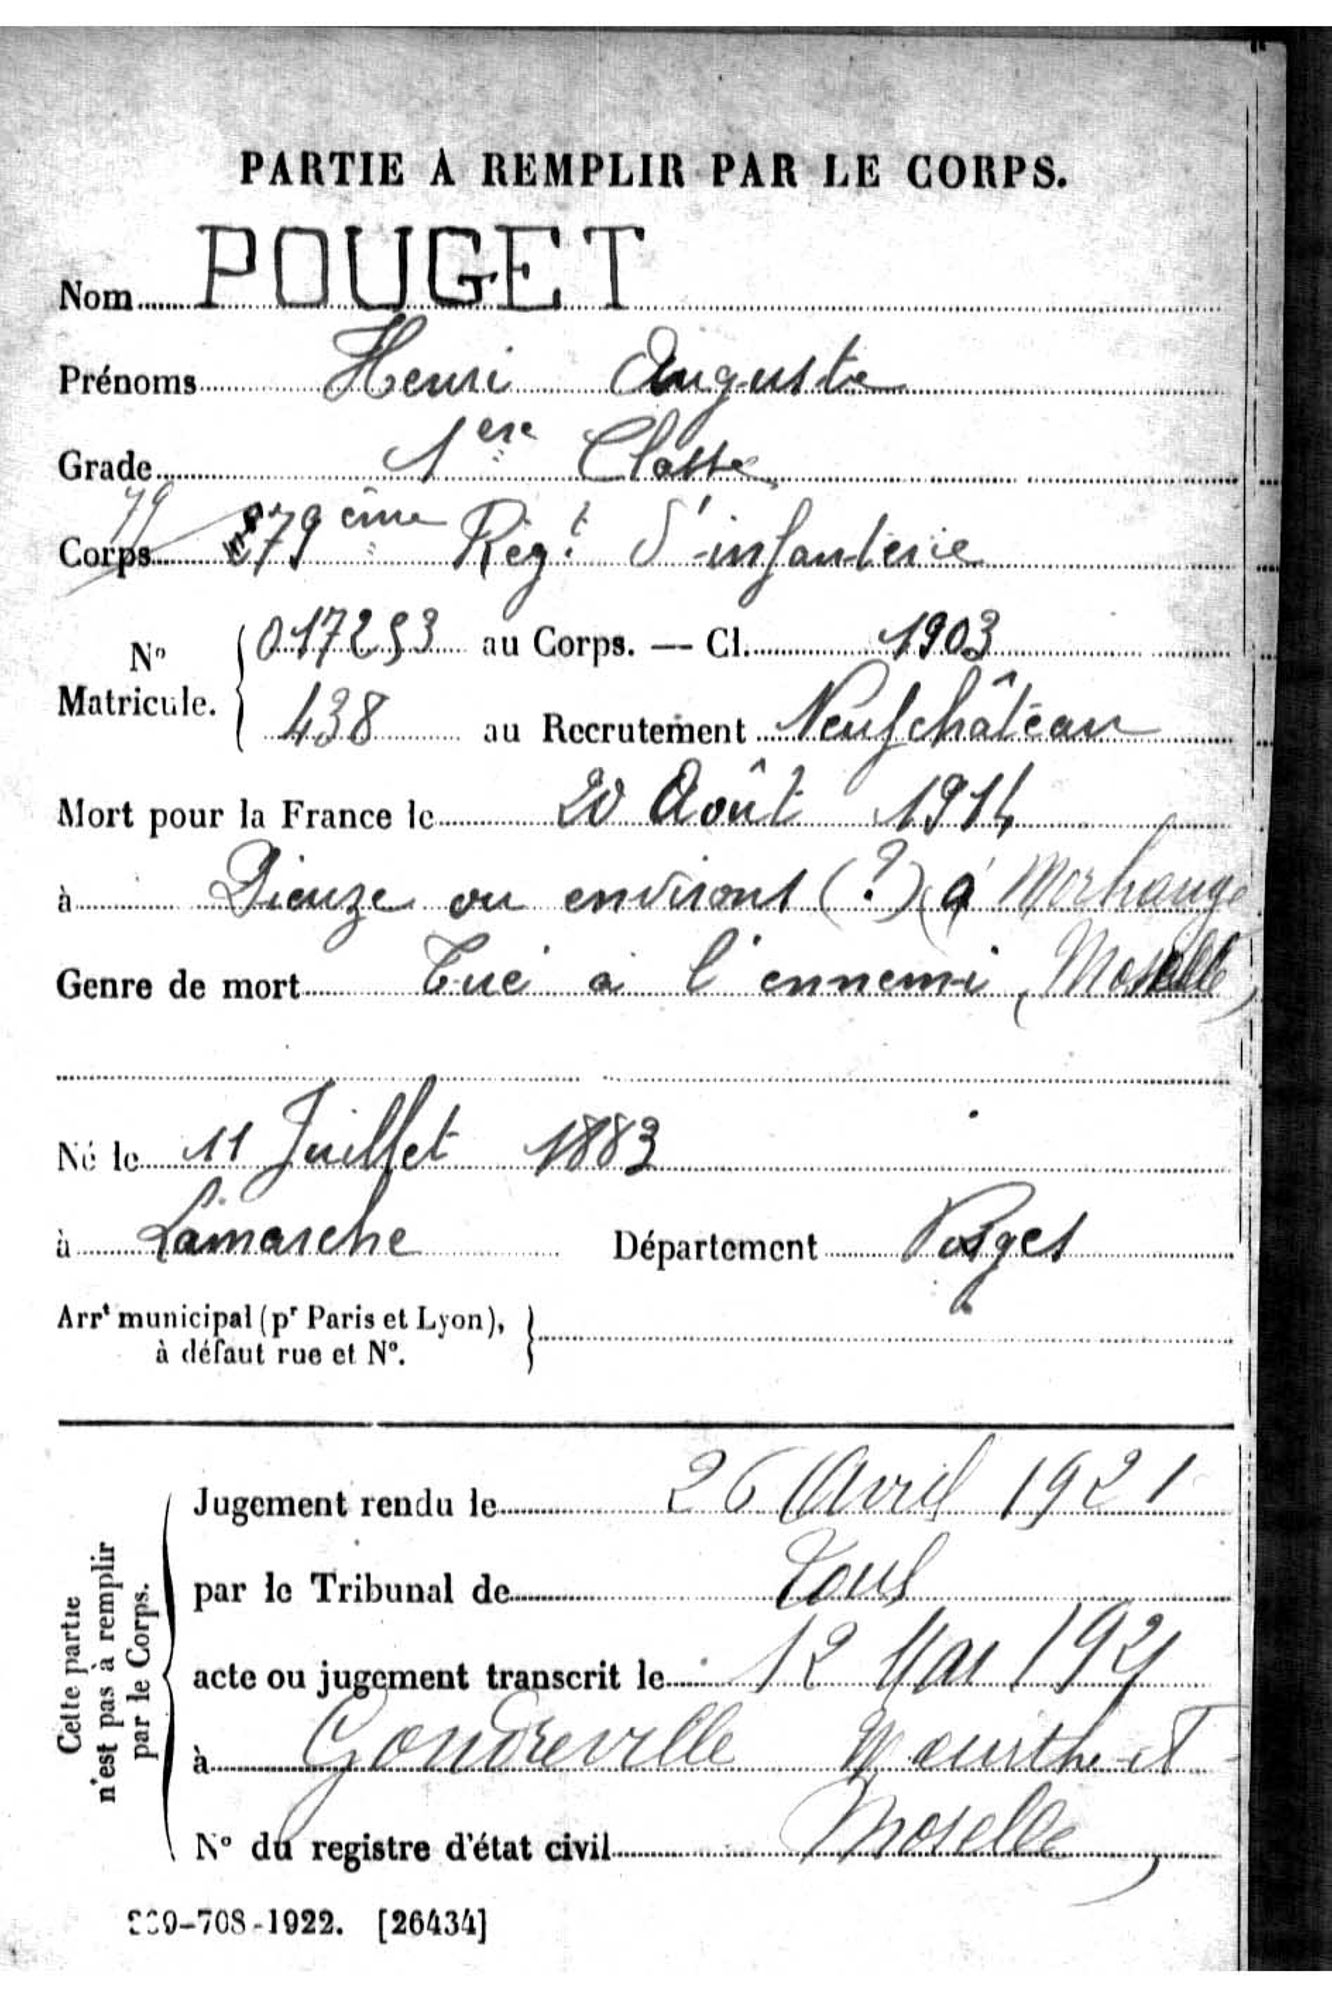 PARTIE À REMPLIR PAR LE CORPS.
Nom POUGET
Prénoms Henri Auguste
Grade 1ere Classe
79
Corps 79 ème Régt d'infanterie
No Matricule. 017253 au Corps. — Cl. 1903
438 au Recrutement Neufchâteau
Mort pour la France le 20 Août 1914
à Dieuze ou environs (?) à Morhange
Genre de mort Tué à l'ennemi (Moselle)
Né le 11 Juillet 1883
à Lamarche Département Vosges
Arrt municipal (pr Paris et Lyon),
à défaut rue et No.
Cette partie
n'est pas à remplir
par le Corps.
Jugement rendu le 26 Avril 1921
par le Tribunal de Toul
acte ou jugement transcrit le 12 Mai 1921
à Gondreville Meurthe-et-
No du registre d'état civil Moselle
-708-1922. [26434]